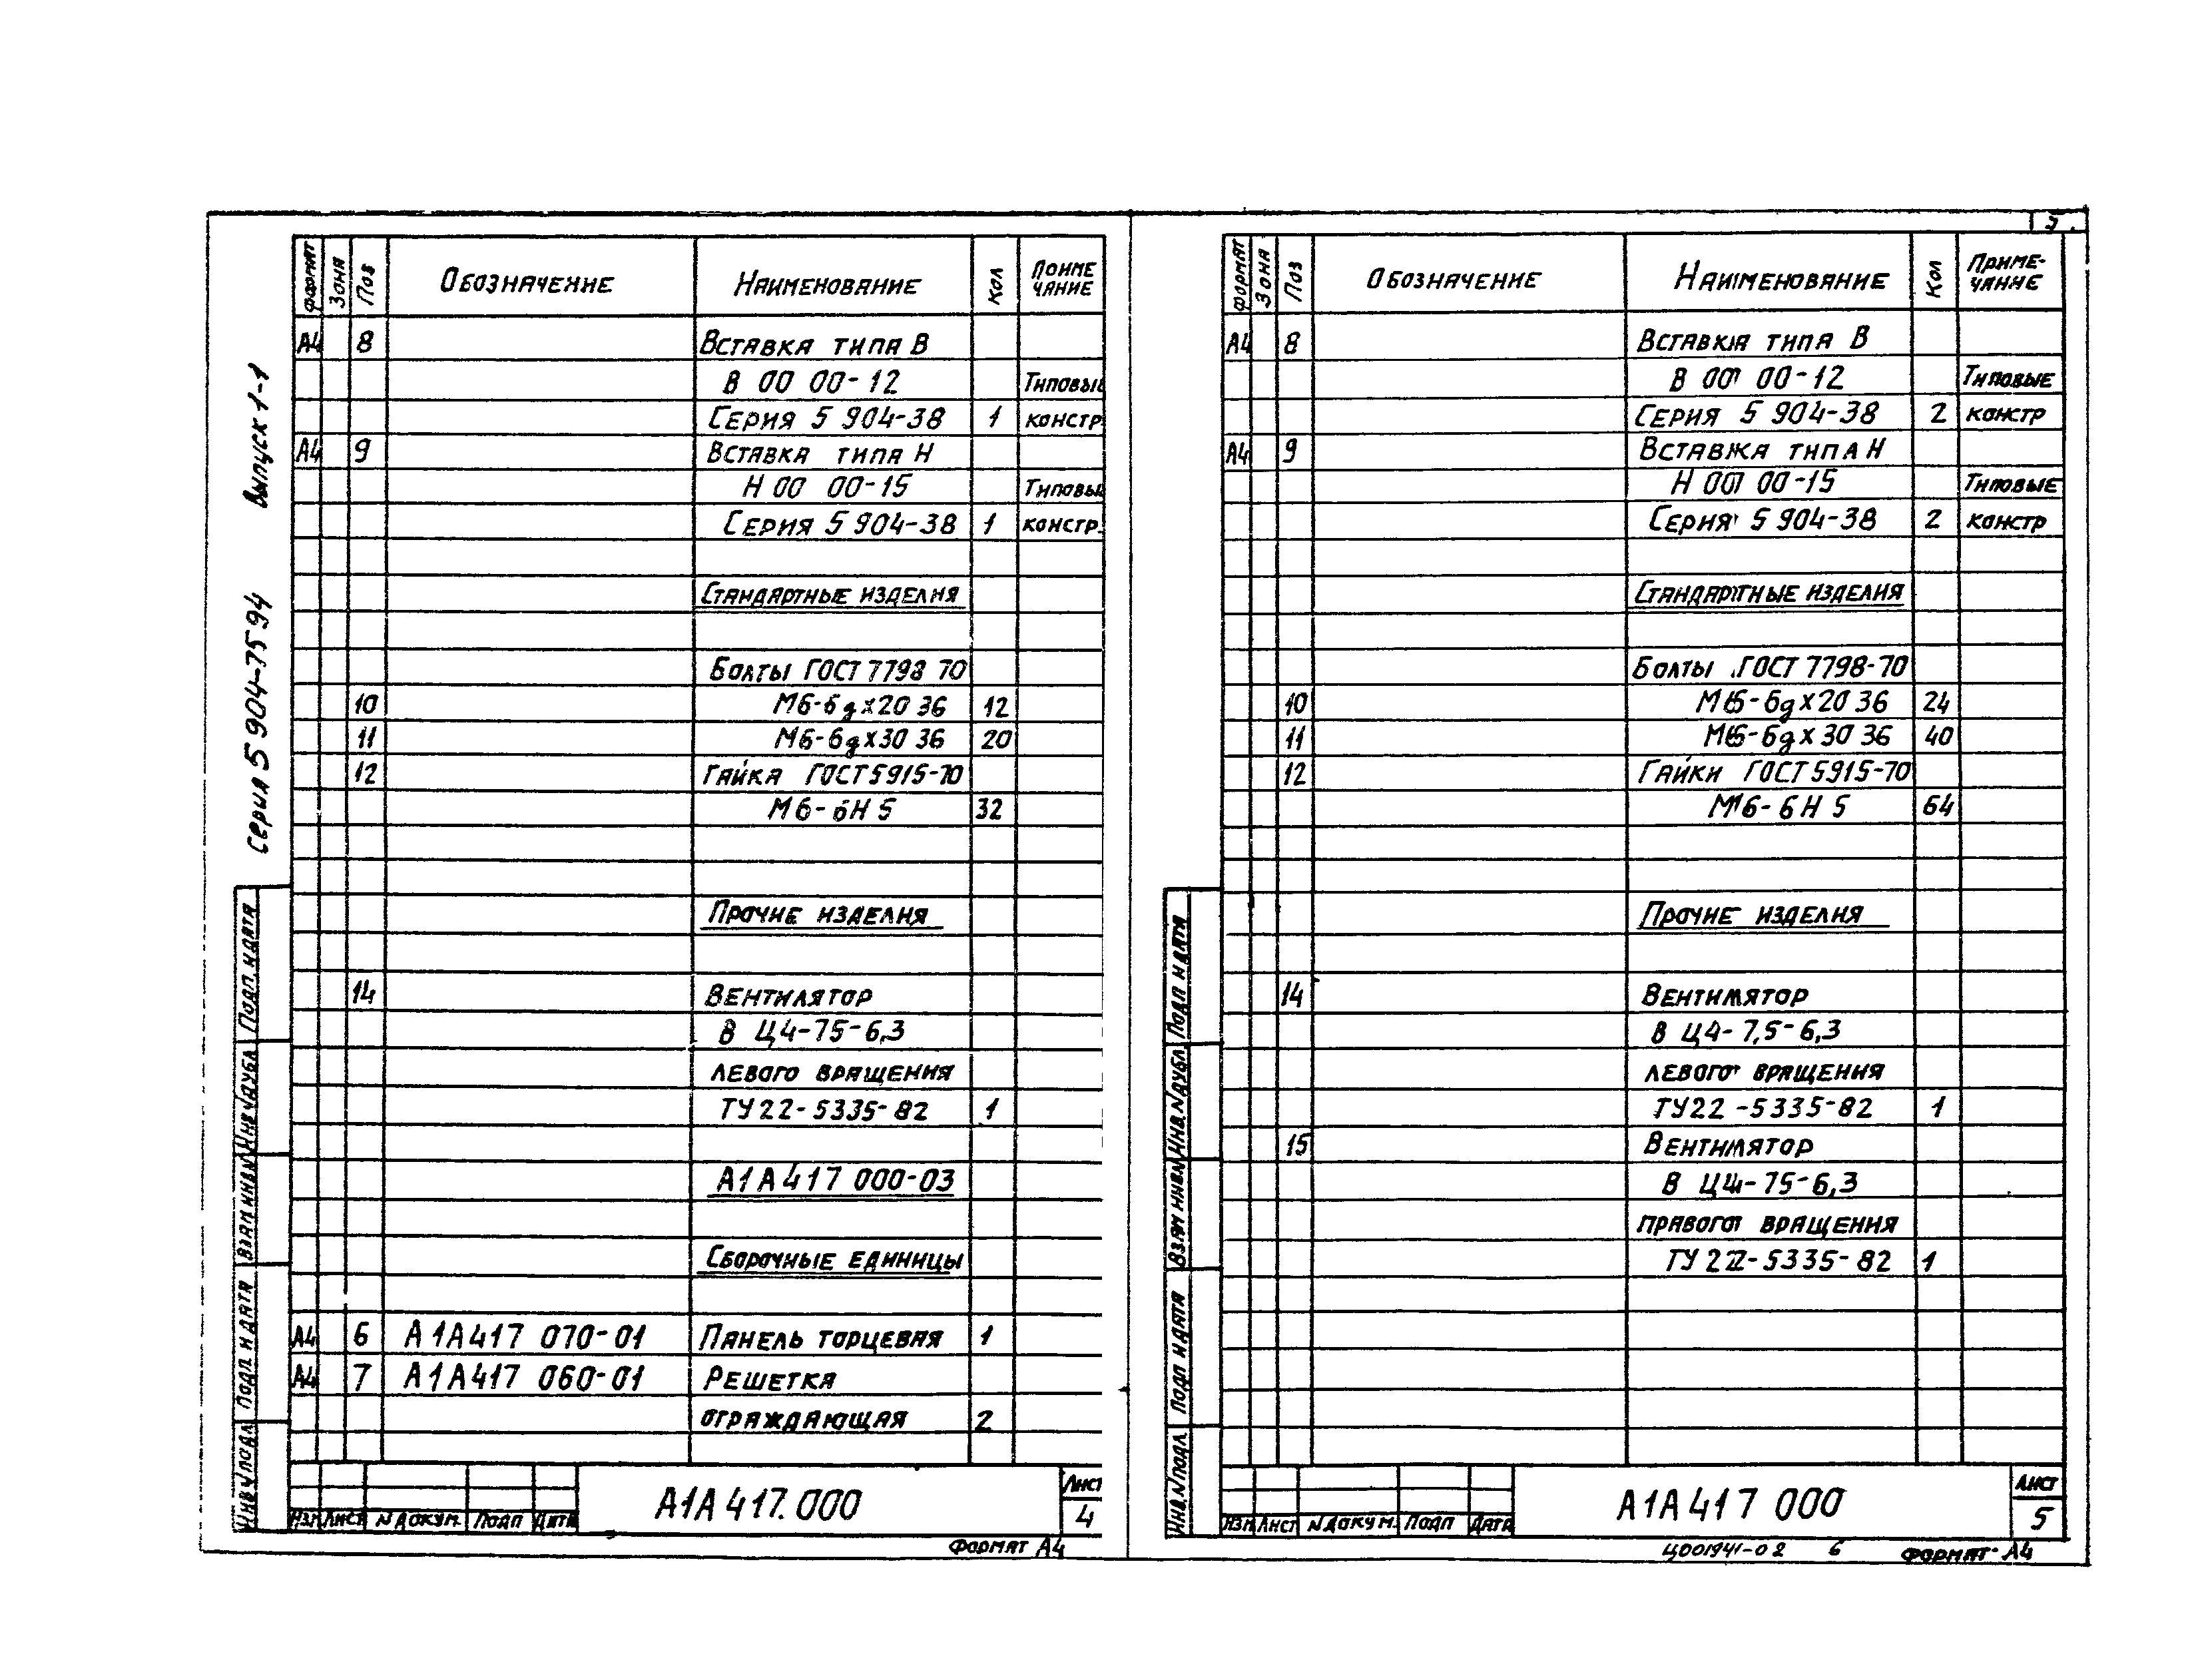 Серия 5 904-75 94 Выпуск 1-1
Формат Зона Поз Обозначение Наименование Кол Приме чание
А4 8 Вставка типа В
В 00 00-12 Типовые
Серия 5 904-38 1 констр.
А4 9 Вставка типа Н
Н 00 00-15 Типовы
Серия 5 904-38 1 констр.
Стандартные изделия
Болты ГОСТ 7798 70
10 М6-6gх20 36 12
11 М6-6gх30 36 20
12 Гайка ГОСТ 5915-70
М6-6Н 5 32
Прочие изделия
14 Вентилятор
В Ц4-75-6,3
левого вращения
ТУ22-5335-82 1
А1А417 000-03
Сборочные единицы
А4 6 А1А417 070-01 Панель торцевая 1
А4 7 А1А417 060-01 Решетка
ограждающая 2
Инв№подл Подп и дата Взам инв№ Инв№дубл Подп. и дата
Изм Лист №докум. Подп Дата
А1А417.000
Лист
4
Формат А4
Формат Зона Поз Обозначение Наименование Кол Приме-чание
А4 8 Вставка типа В
В 00 00-12 Типовые
Серия 5 904-38 2 констр
А4 9 Вставка типа Н
Н 00 00-15 Типовые
Серия 5 904-38 2 констр
Стандартные изделия
Болты ГОСТ 7798-70
10 М6-6gх20 36 24
11 М6-6gх30 36 40
12 Гайки ГОСТ 5915-70
М6-6Н 5 64
Прочие изделия
14 Вентилятор
В Ц4-7,5-6,3
левого вращения
ТУ22-5335-82 1
15 Вентилятор
В Ц4-75-6,3
правого вращения
ТУ22-5335-82 1
Инв.№подл. Подп и дата Взам инв№ Инв.№дубл. Подп и дата
Изм Лист №докум. Подп Дата
А1А417 000
Лист
5
Ц001941-02 6 Формат А4